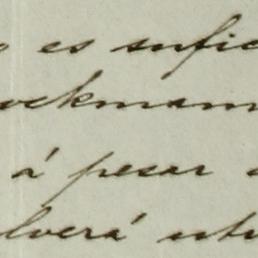 o es sufic
ockmann
á pesar
lverá